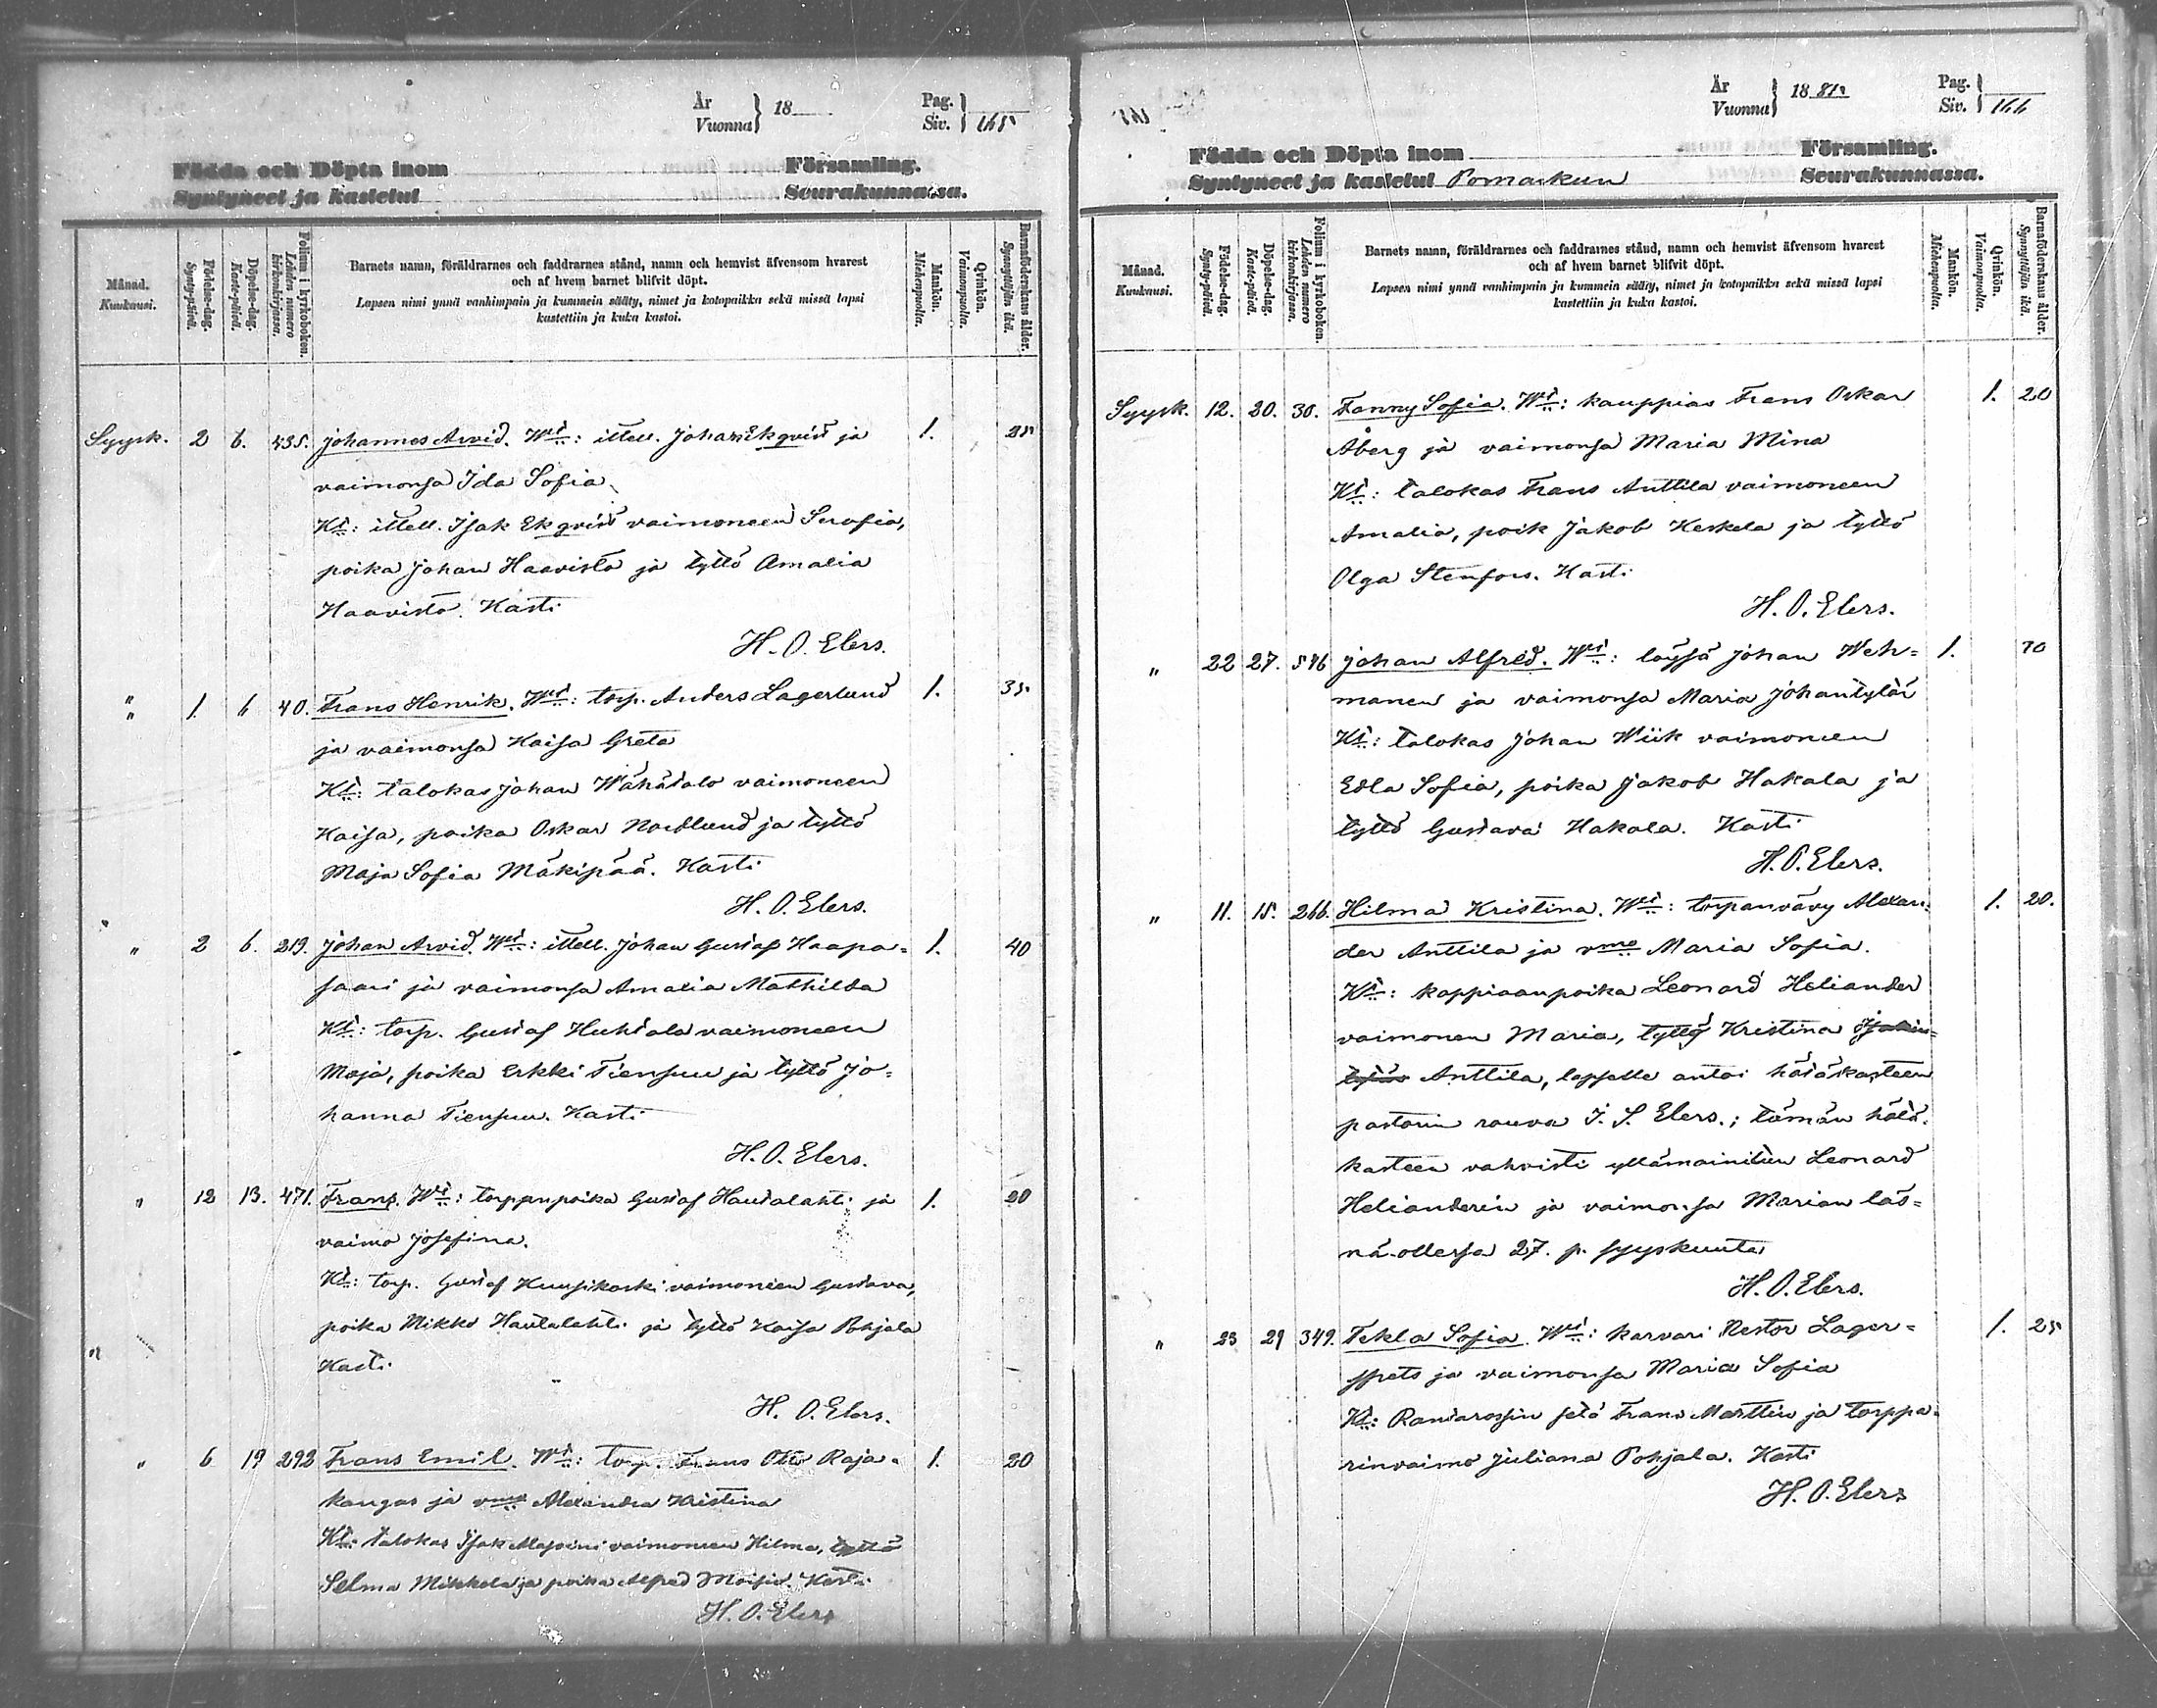 År
Vuonna } 18
Pag.
Siv. } 165
Födda och Döpta inom Församling.
Syntyneet ja kastetut Seurakunnassa.
Månad.
Kuukausi.
Födelse-dag.
Synty-päivä.
Döpelse-dag.
Kaste-päivä.
Folium i kyrkoboken.
Lehden numero kirkonkirjassa.
Barnets namn, föräldrarnes och faddrarnes stånd, namn och hemvist äfvensom hvarest
och af hvem barnet blifvit döpt.
Lapsen nimi ynnä vanhimpain ja kummein sääty, nimet ja kotopaikka sekä missä lapsi
kastettiin ja kuka kastoi.
Mankön.
Miehenpuolta.
Qvinkön.
Vaimonpuolta.
Barnaföderskans ålder.
Synnyttäjän ikä.
Syysk. 2 6. 435. Johannes Arvid. Wst: itell. Johan Ekqvist ja 1. 25
vaimonsa Ida Sofia
Kt: itell. Isak Ekqvist vaimoneen Serafia,
poika Johan Haavisto ja tyttö Amalia
Haavisto. Kasti
H. O. Elers.
" 1. 6 40. Frans Henrik. Wst: torp. Anders Lagerlund 1. 35
ja vaimonsa Kaisa Greta
Kt: talokas Johan Wähätalo vaimoneen
Kaisa, poika Oskar Nordlund ja tyttö
Maja Sofia Mäkipää. Kasti
H. O. Elers.
" 2 6. 219. Johan Arvid. Wst: itell. Johan Gustaf Haapa= 1. 40
saari ja vaimonsa Amalia Mathilda
Kt: torp. Gustaf Huhtala vaimoneen
Maja, poika Erkki Tiensuu ja tyttö Jo=
hanna Tiensuu. Kasti
H. O. Elers.
" 12 13. 471. Frans. Wt: torppanpoika Gustaf Hautalahti ja 1. 20
vaimo Josefina.
Kt: torp. Gustaf Kuusikoski vaimoneen Gustava,
poika Mikko Hautalahti ja tyttö Kaisa Pohjala
Kasti
H. O. Elers.
" 6 19 292 Frans Emil. Wt: torp. Frans Otto Raja= 1. 20
kangas ja vmo Alexandra Kristina
Kt: talokas Isak vaimoneen Hilma, tyttö
Selma Mikkola ja poika Alfred Kasti
H. O. Elers
År
Vuonna } 1881
Pag.
Siv. } 166
Födda och Döpta inom Församling.
Syntyneet ja kastetut Pomarkun Seurakunnassa.
Månad.
Kuukausi.
Födelse-dag.
Synty-päivä.
Döpelse-dag.
Kaste-päivä.
Folium i kyrkoboken.
Lehden numero kirkonkirjassa.
Barnets namn, föräldrarnes och faddrarnes stånd, namn och hemvist äfvensom hvarest
och af hvem barnet blifvit döpt.
Lapsen nimi ynnä vanhimpain ja kummein sääty, nimet ja kotopaikka sekä missä lapsi
kastettiin ja kuka kastoi.
Mankön.
Miehenpuolta.
Qvinkön.
Vaimonpuolta.
Barnaföderskans ålder.
Synnyttäjän ikä.
Syysk. 12. 20. 30. Fanny Sofia. Wst: kauppias Frans Oskar 1. 20
Åberg ja vaimonsa Maria Mina
Kt: talokas Frans Anttila vaimoneen
Amalia, poik Jakob Keskela ja tyttö
Olga Stenfors. Kasti
H. O. Elers.
" 22 27. 546 Johan Alfred. Wst: löysä Johan Weh= 1. 30
manen ja vaimonsa Maria Johantytär
Kt: talokas Johan Wiik vaimoneen
Edla Sofia, poika Jakob Hakala ja
tyttö Gustava Hakala. Kasti
H. O. Elers.
" 11. 15. 266. Hilma Kristina. Wst: torpanvävy Alexan= 1. 20.
der Anttila ja vmo Maria Sofia.
Kt: kappiaanpoika Leonard Heliander
vaimonen Maria, tyttö Kristina
Anttila, lapselle antoi hätäkasteen
pastorin rouva I. S. Elers.; tämän hätä=
kasteen vahvisti yllämainitun Leonard
Helianderin ja vaimonsa Marian läs=
nä-ollessa 27. p. syyskuuta
H. O. Elers.
" 23 29 349. Tekla Sofia. Wst: karvari Nestor Lager= 1. 25
spets ja vaimonsa Maria Sofia
Kt: Rantarossin setä Frans Marttin ja torppa=
rinvaimo Juliana Pohjala. Kasti
H. O. Elers